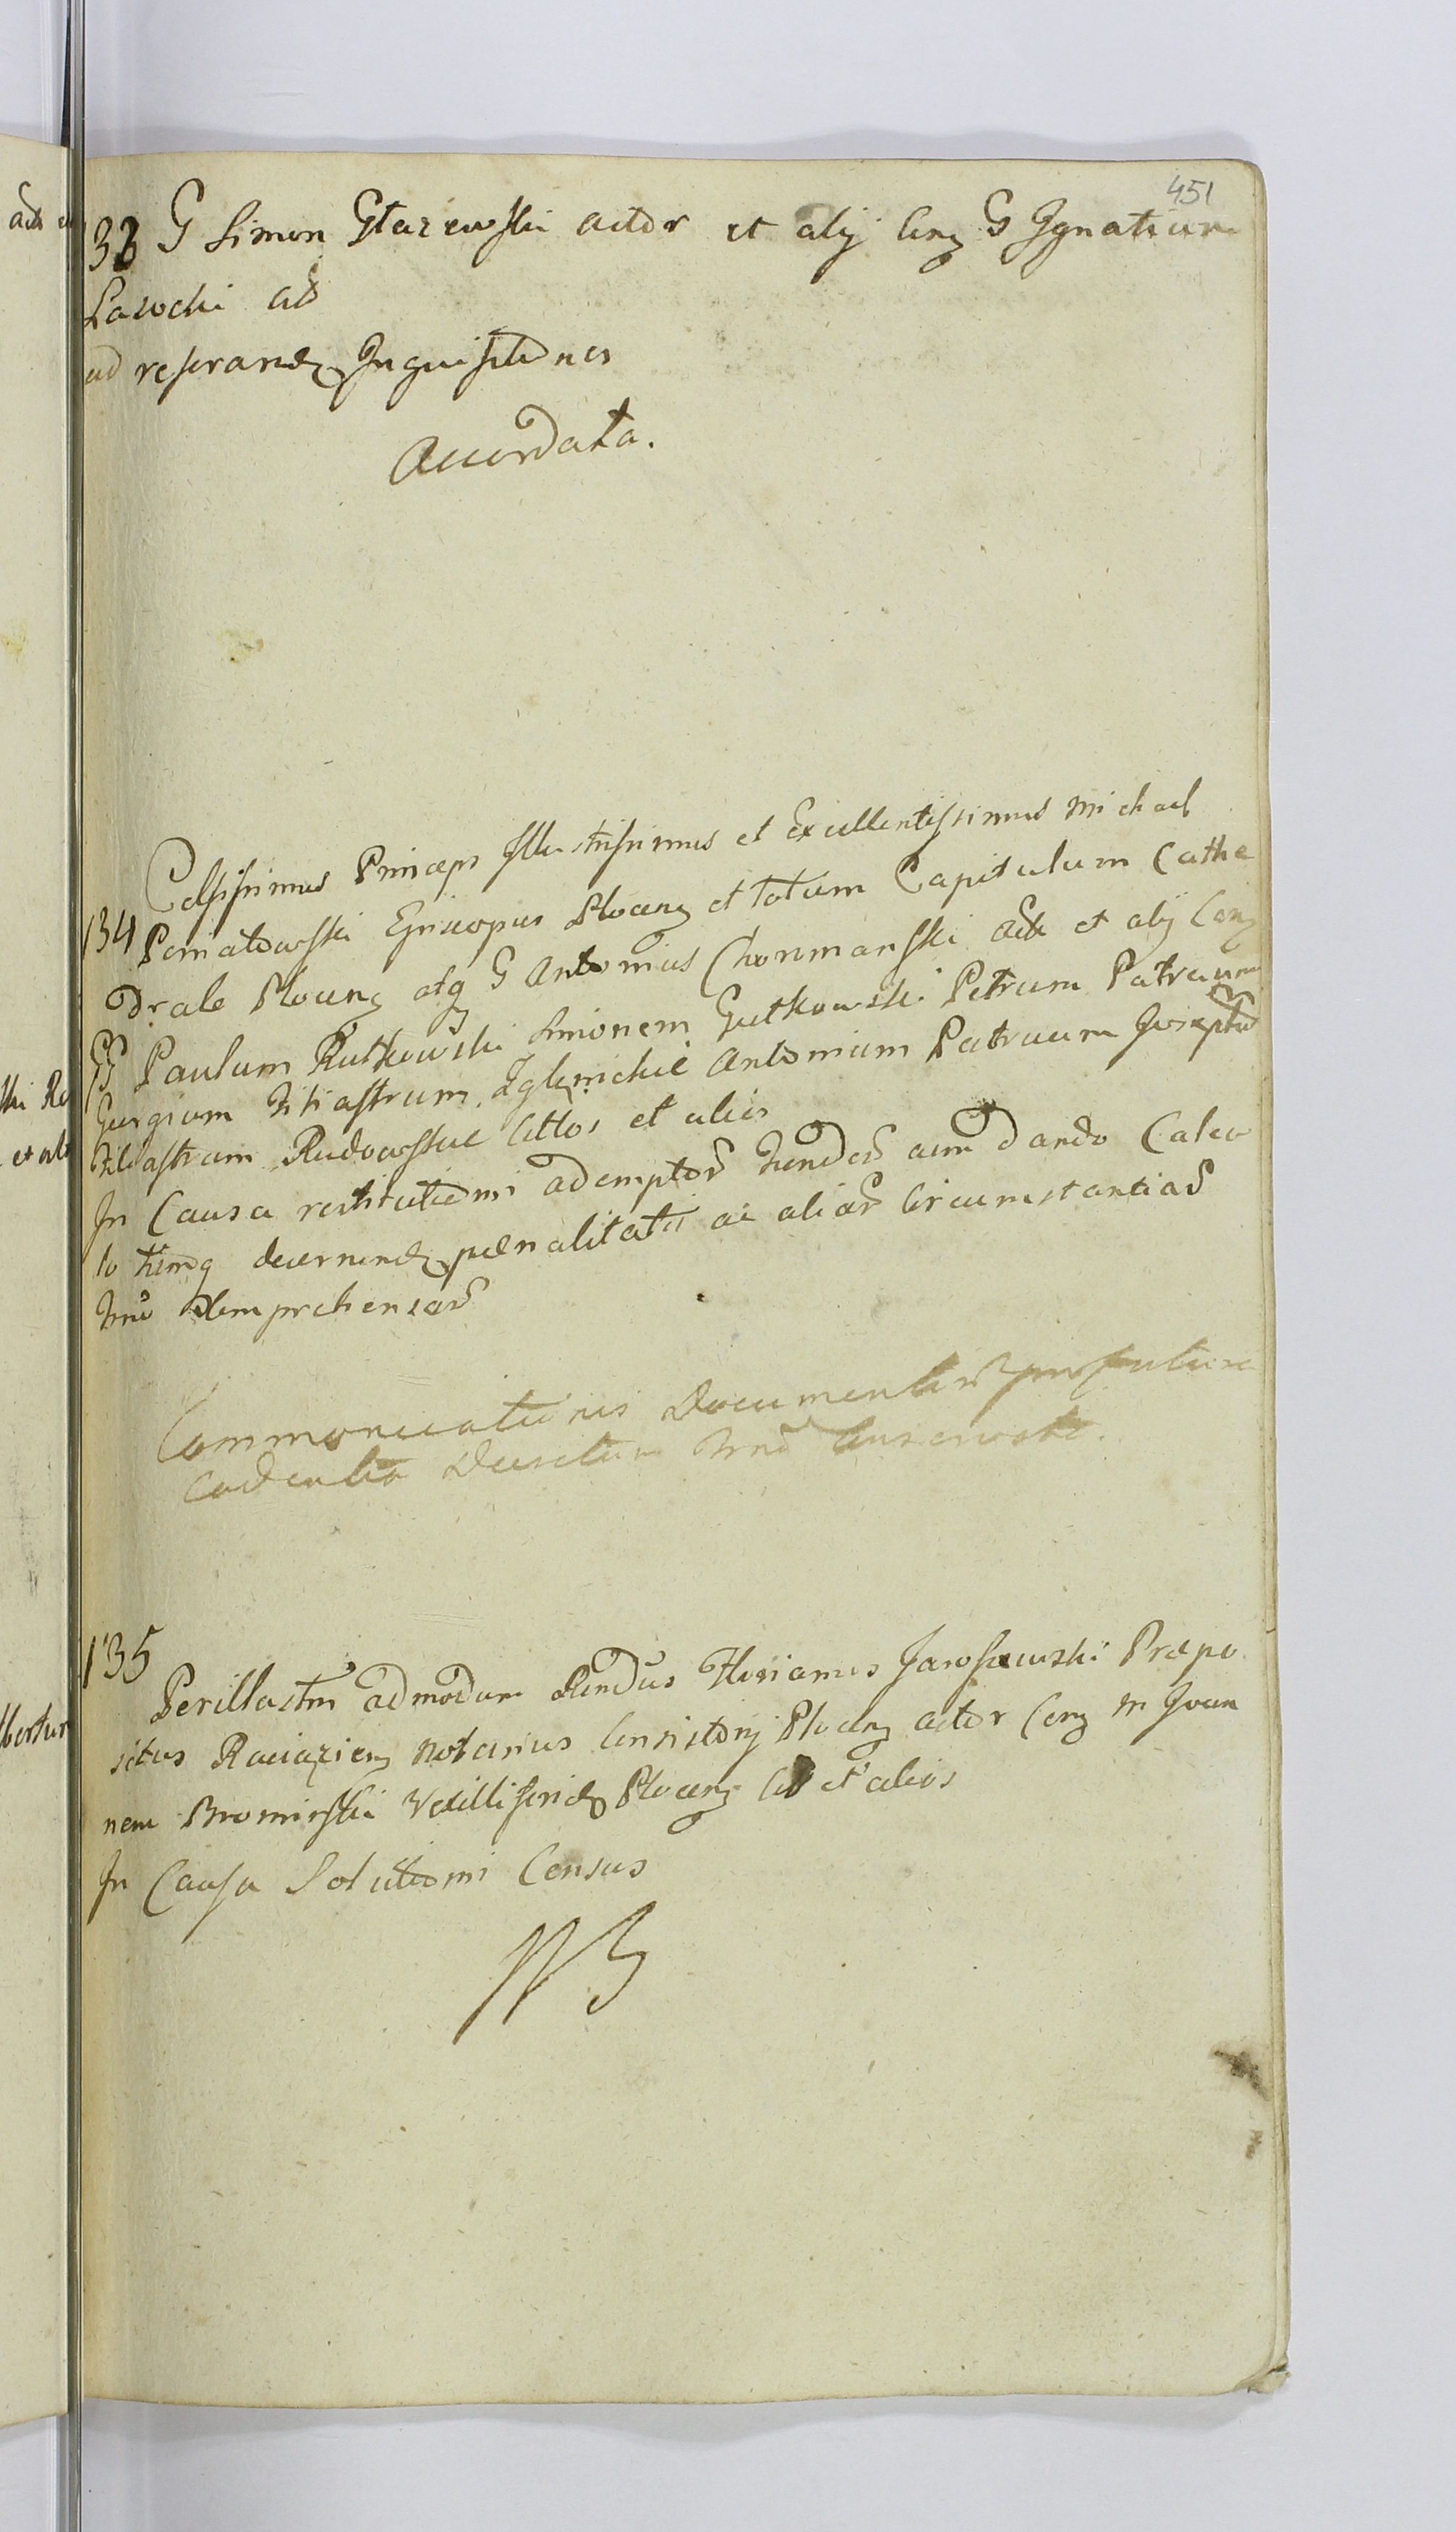 451
133 G Simon Głazewski actor et alij Cong G Ignatium
Lasocki Cit
ad reserand Inquisitiones
Accordata.
134 Celsissimus Princeps Illustrissimus et Excellentissimus Michael
Poniatowski Episcopus Plocens et totum Capitulum Cathe
Drale Plocens atq G Antonius Chormanski Act et alij Cong
GG Paulum Rutkowski Simonem Gutkowski Petrum Patruum
Georgium Filiastrum Zglenickie Antonium Patruum Josephum
Filiastrum Rudowskie Cittos et alios
In Causa restitutioni ademptor fundor cum dando Calcu
lo timq decernend pænalitatis ac aliar Circumstantiar
Comprehensar
Communicationis Documentor pro futura
Cadentia Decretum
135
Perillustris admodum Rndus Florianus Jaroszewski Præpo
situs Raciążiens Notarius Consistorij Plocens actor Cong M Joan
nem Bromirski Vexilliferid Plocens Cit et alios
In Causa Solutioni Census